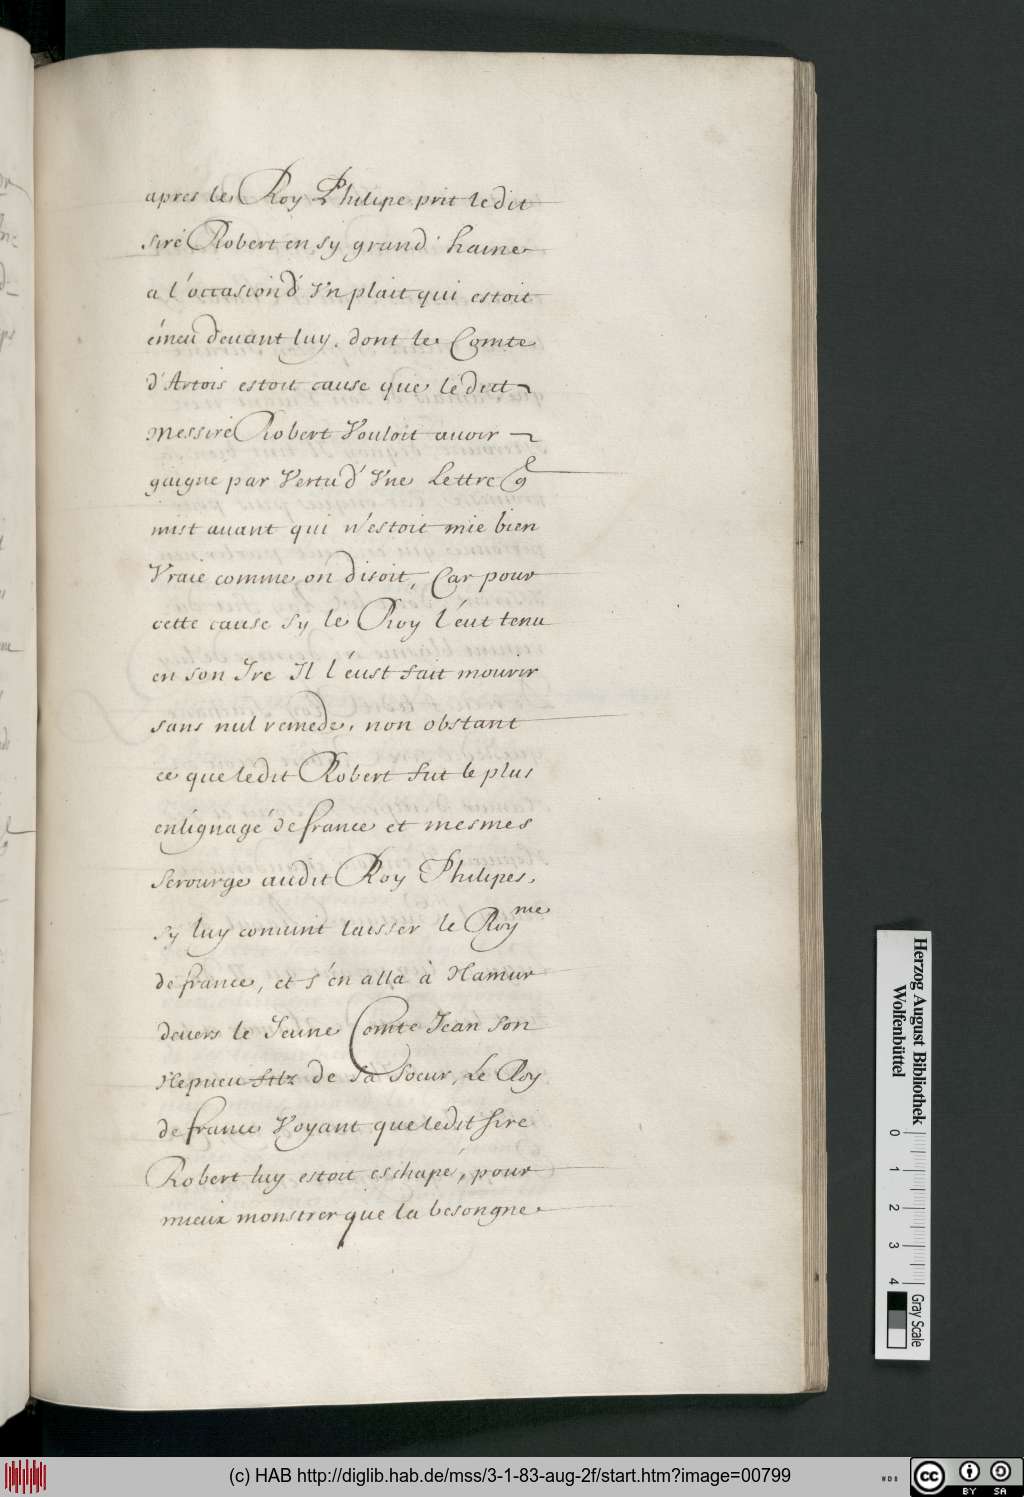 apres le Roy Philipe prit ledit
siré Robert en sy grand' haine
a l'occasion d' Vn plait qui estoit
émeu deuant luy. dont le Comte
d'Artois estoit cause que ledict
messire Robert Vouloit auoir
gaigne par Vertu d' Vne Lettre
mist auant qui n'estoit mie bien
Vraie comme on disoit, Car pour
cette cause sy le Roy l'éut tenu
en son Ire Il l'éust fait mourir
sans nul remede, non obstant
ce que ledit Robert fut le plus
enlignagé de france et mesmes
serourge audit Roy Philipes,
sy luy conuint laisser le Roy^me
de france, et s'en alla à Namur
deuers le Jeune Comte Jean son
Nepueu filz de sa soeur, Le Roy
de france Voyant que ledit sire
Robert luy estoit eschapé, pour
mieux monstrer que la besongne
Herzog August Bibliothek
Wolfenbüttel
0 1 2 3 4
Gray Scale
(c) HAB http://diglib.hab.de/mss/3-1-83-aug-2f/start.htm?image=00799
WDB
cc BY SA